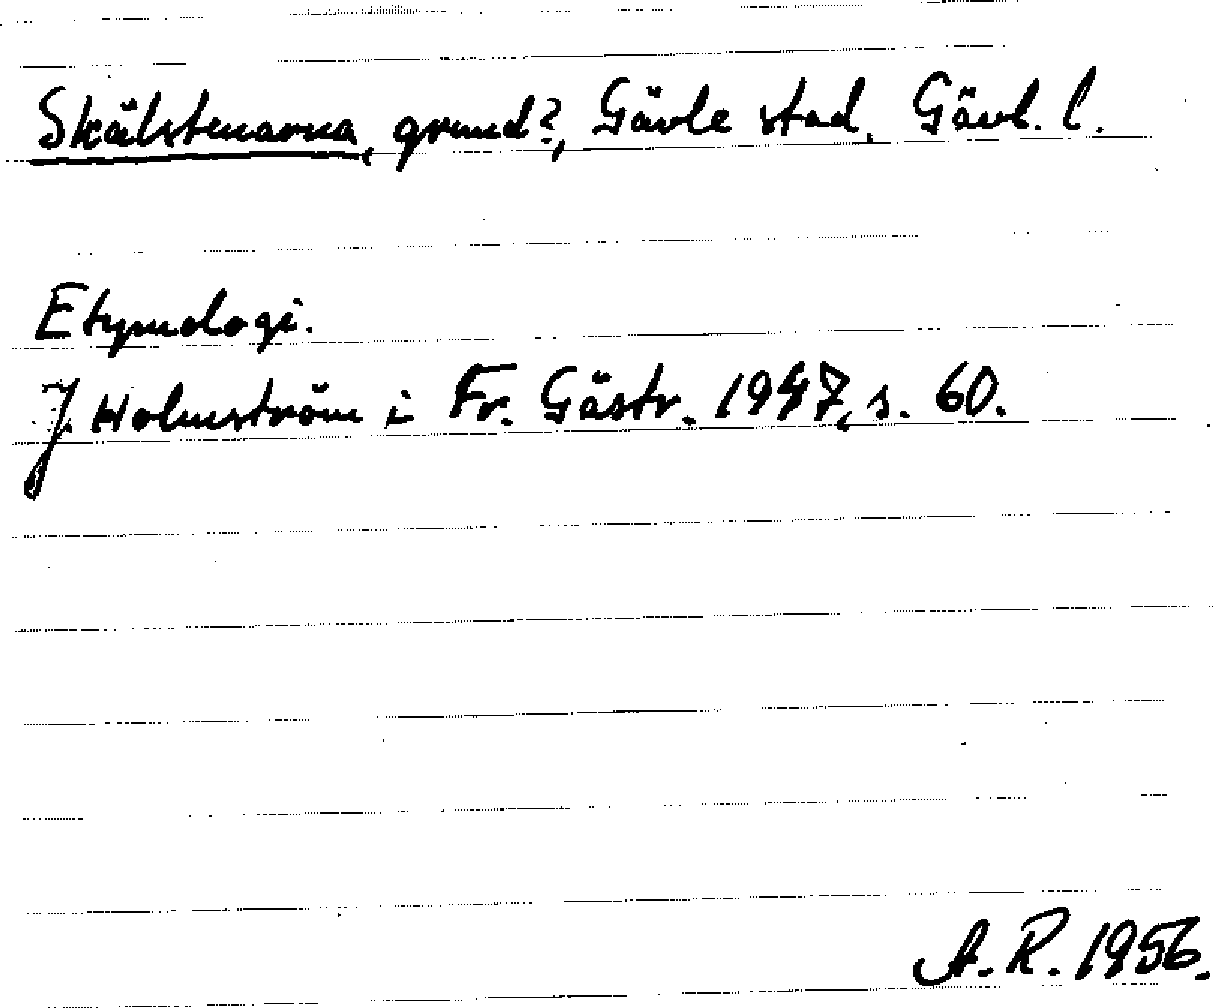 Skälstenarna, grund?, Gävle stad, Gävl. l.
Etymologi.
J. Holmström i Fr. Gästr. 1947, s. 60.
A. R. 1956.